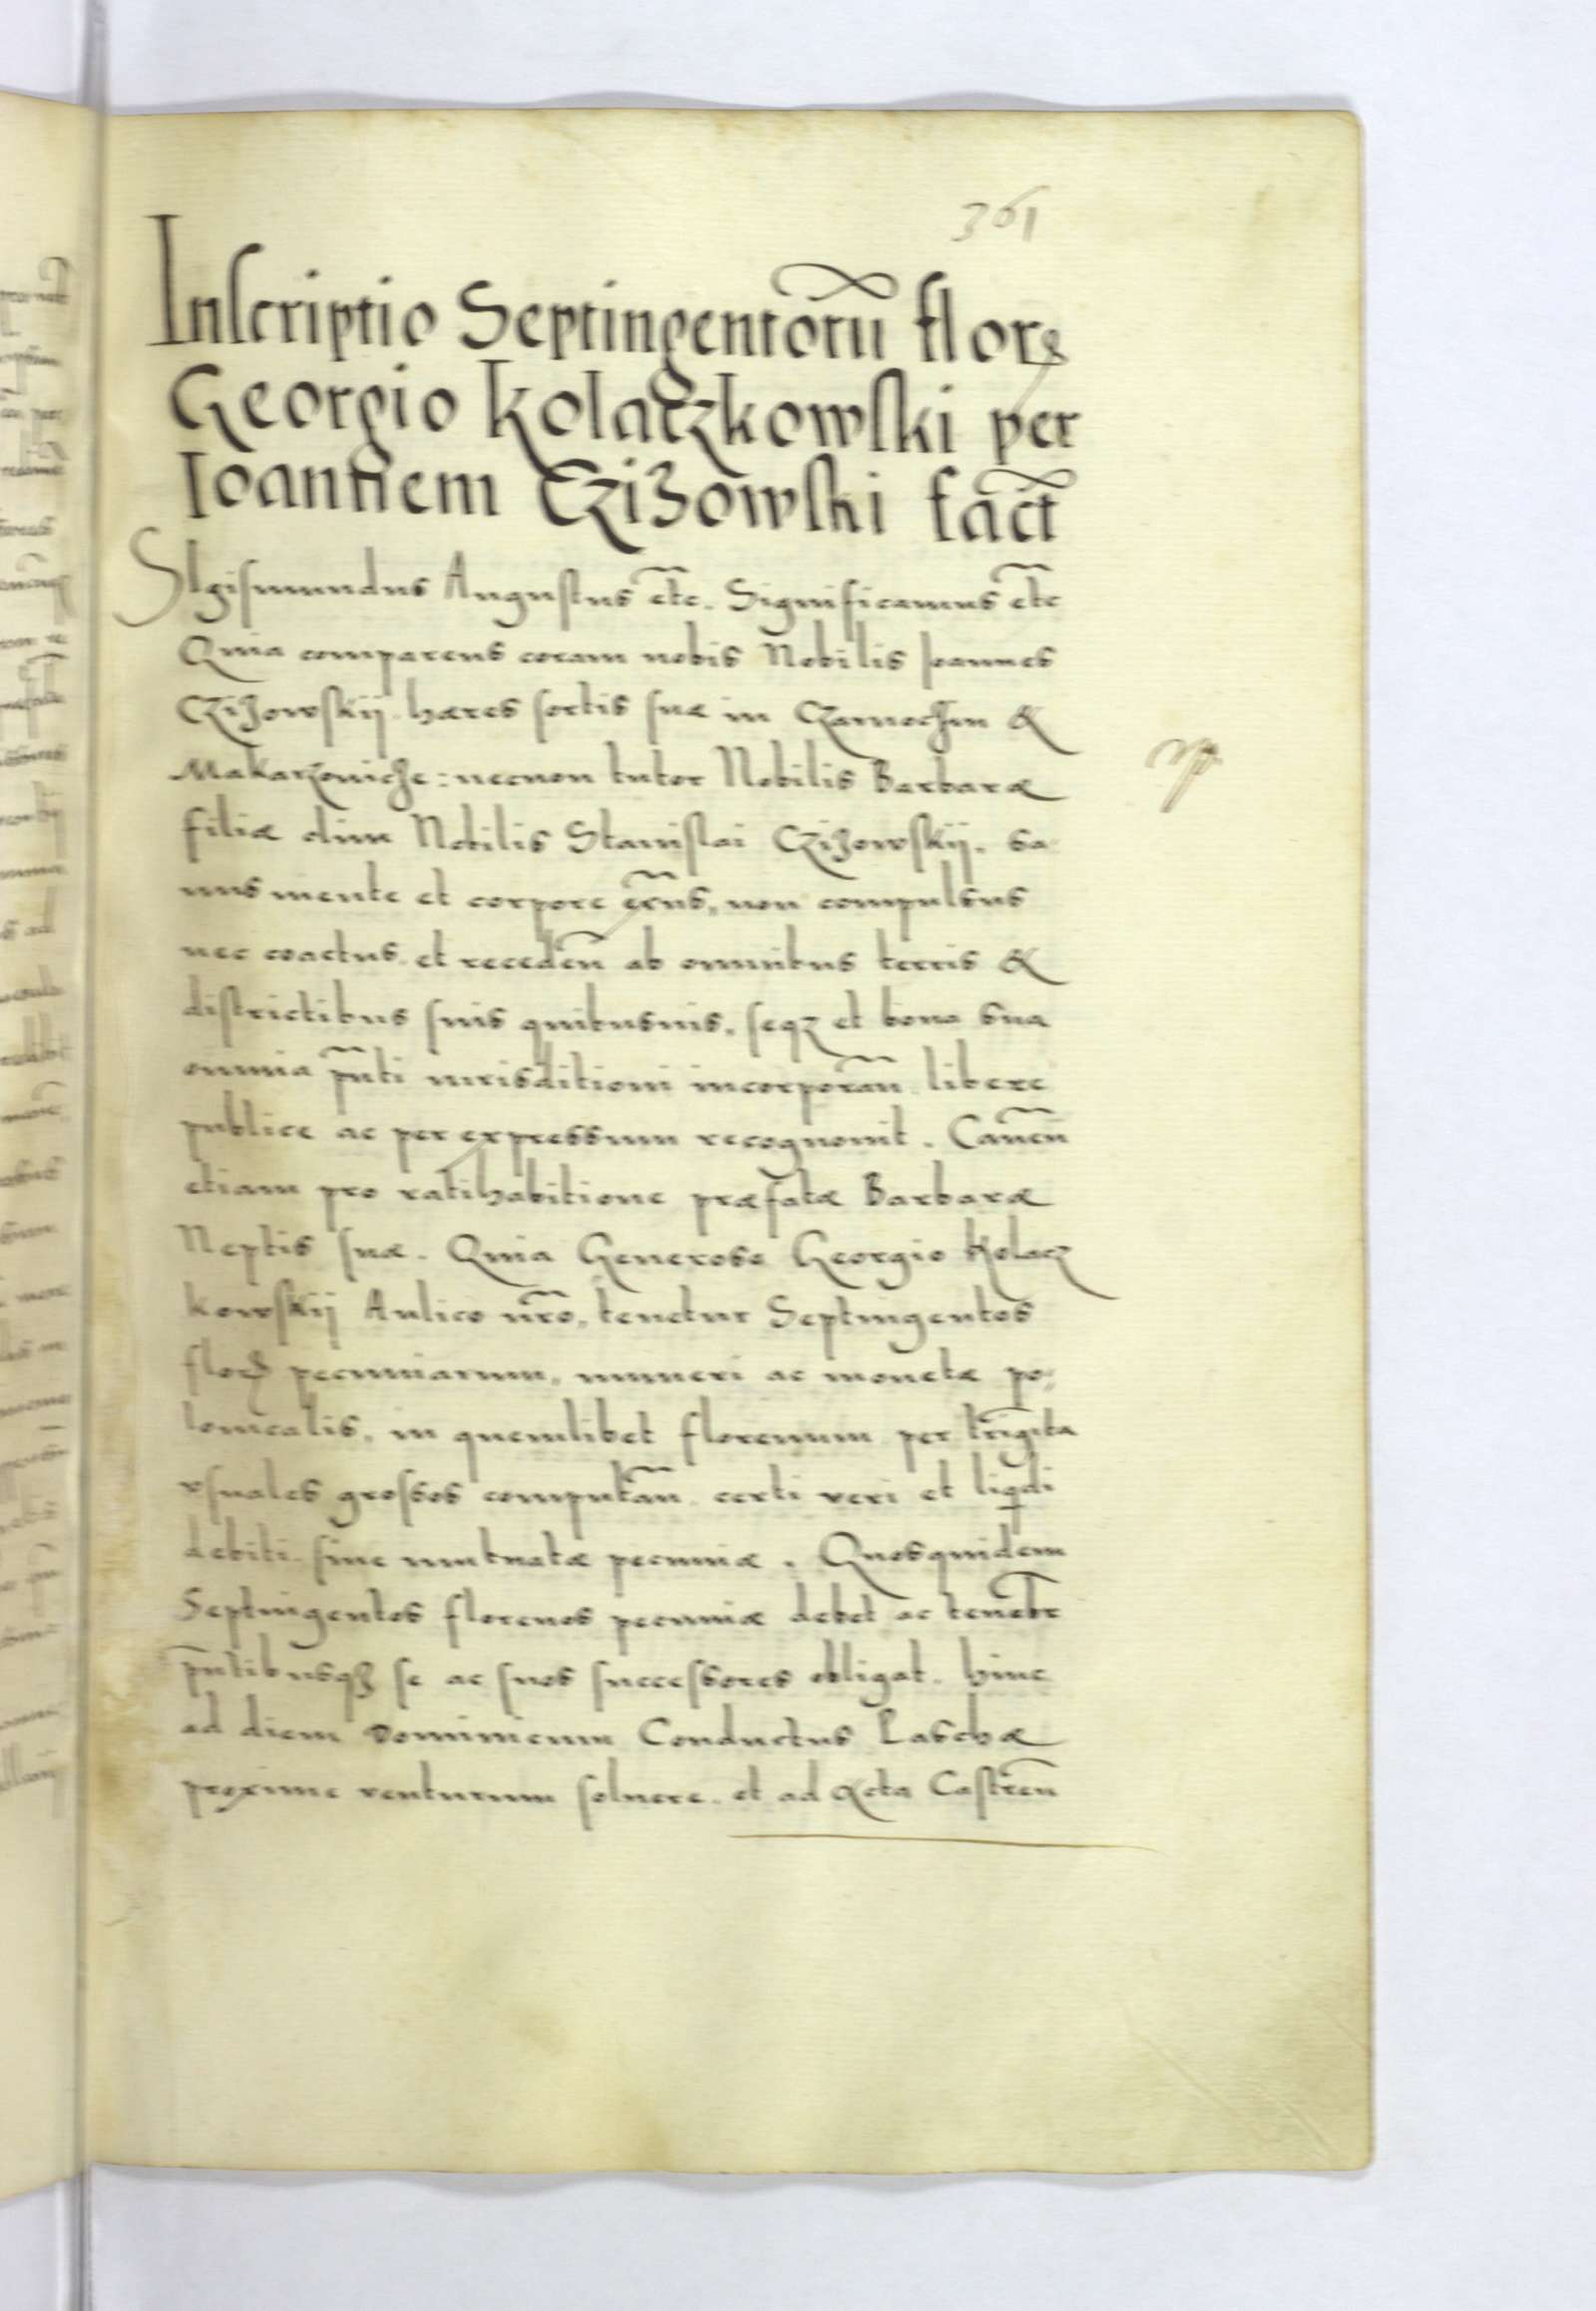 361
Inscriptio Septingentorũ flor
Georgio Kolaczkowski per
Ioannem Czizowski fact̃
SIgismundus Augustus etc̃. Significamus etc̃
Quia comparens coram nobis Nobilis Joannes
Czizowskij hæres sortis suæ in Czarnoczin &
: necnon tutor Nobilis Barbaræ
filiæ olim Nobilis Stanislai Czizowskij. sa
nus mente et corpore exñs, non compulsus
nec coactus et receden̄ ab omnibus terris &
districtibus suis quibusuis, seqz et bona sua
omnia pñti iurisditioni incorporan̄ libere
publice ac per expressum recognouit. Cauen̄
etiam pro ratihabitione præfatæ Barbaræ
Neptis suæ. Quia Generoso Georgio Kolacz
kowskij Aulico nr̃o, tenetur Septingentos
pecuniarum, numeri ac monetæ po:
lonicalis, in quemlibet florenum per trigĩta
vsuales grossos computan̄ certi veri et liqdi
debiti siue mutuatæ pecuniæ. Quosquidem
Septingentos florenos pecuniæ debet ac tenebr̃
pñtibusqz se ac suos successores obligat. hinc
ad diem Dominicum Conductus Paschæ
proxime venturum soluere. et ad Acta Castren̄